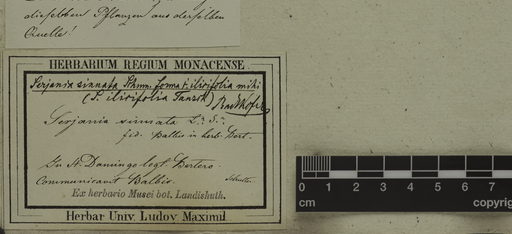 dieselben Pflanzen aus derselben
Quelle!
HERBARIUM REGIUM MONACENSE.
Serjania sinuata Schum. forma 1. ilicifolia mihi
(S. ilicifolia Tausch) Radlkofer
Serjania sinuata
fid. Balbis in herb. Bert.
In St. Domingo legt. Bertero.
Communicavit Balbis
Ex herbario Musei bot. Landishuth.
Herbar Univ. Ludov Maximil
0 1 2 3 4 5 6 7
cm copyrig